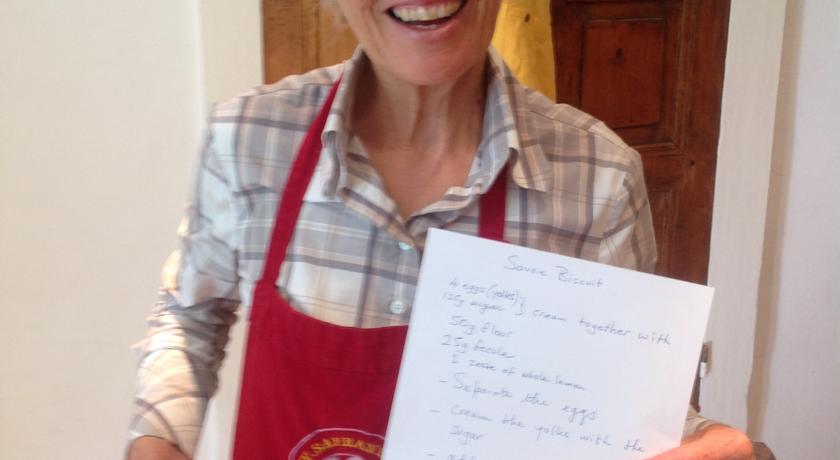 Savoie Biscuit
4 eggs (yolks)
125g sugar } cream together with
50g flour
25g fecule
1 zeste of whole lemon
- Separate the eggs
- Cream the yolks with the
sugar